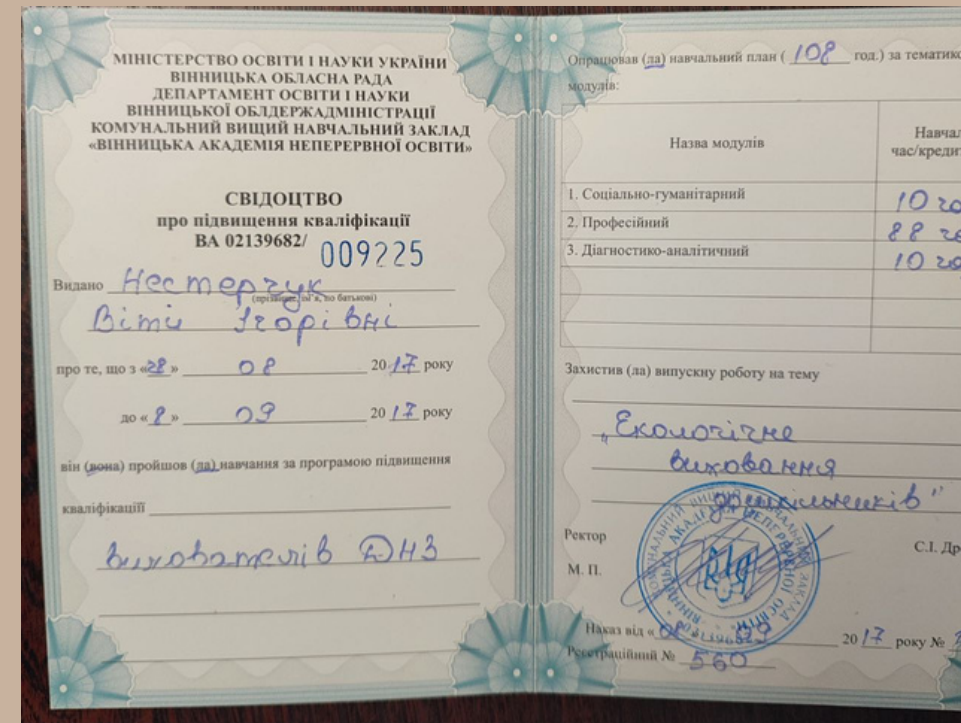 МІНІСТЕРСТВО ОСВІТИ І НАУКИ УКРАЇНИ
ВІННИЦЬКА ОБЛАСНА РАДА
ДЕПАРТАМЕНТ ОСВІТИ І НАУКИ
ВІННИЦЬКОЇ ОБЛДЕРЖАДМІНІСТРАЦІЇ
КОМУНАЛЬНИЙ ВИЩИЙ НАВЧАЛЬНИЙ ЗАКЛАД
«ВІННИЦЬКА АКАДЕМІЯ НЕПЕРЕРВНОЇ ОСВІТИ»
СВІДОЦТВО
про підвищення кваліфікації
ВА 02139682/ 009225
Видано Нестерчук
(прізвище, ім'я, по батькові)
Віти Ігорівні
про те, що з «28» 08 2017 року
до «8» 09 2017 року
він (вона) пройшов (ла) навчання за програмою підвищення
кваліфікації
вихователів ДНЗ
Опрацював (ла) навчальний план ( 108 год.) за тематикою
модулів:
Назва модулів
Навчал
час/кредит
1. Соціально-гуманітарний 10 го
2. Професійний 88 го
3. Діагностико-аналітичний 10 го
Захистив (ла) випускну роботу на тему
„Екологічне
виховання
дошкільників"
Ректор С.І. Др
М. П.
КОМУНАЛЬНИЙ ВИЩИЙ НАВЧАЛЬНИЙ ЗАКЛАД
ВІННИЦЬКА АКАДЕМІЯ НЕПЕРЕРВНОЇ ОСВІТИ
Наказ від «08 09 2017 року №
Реєстраційний № 560